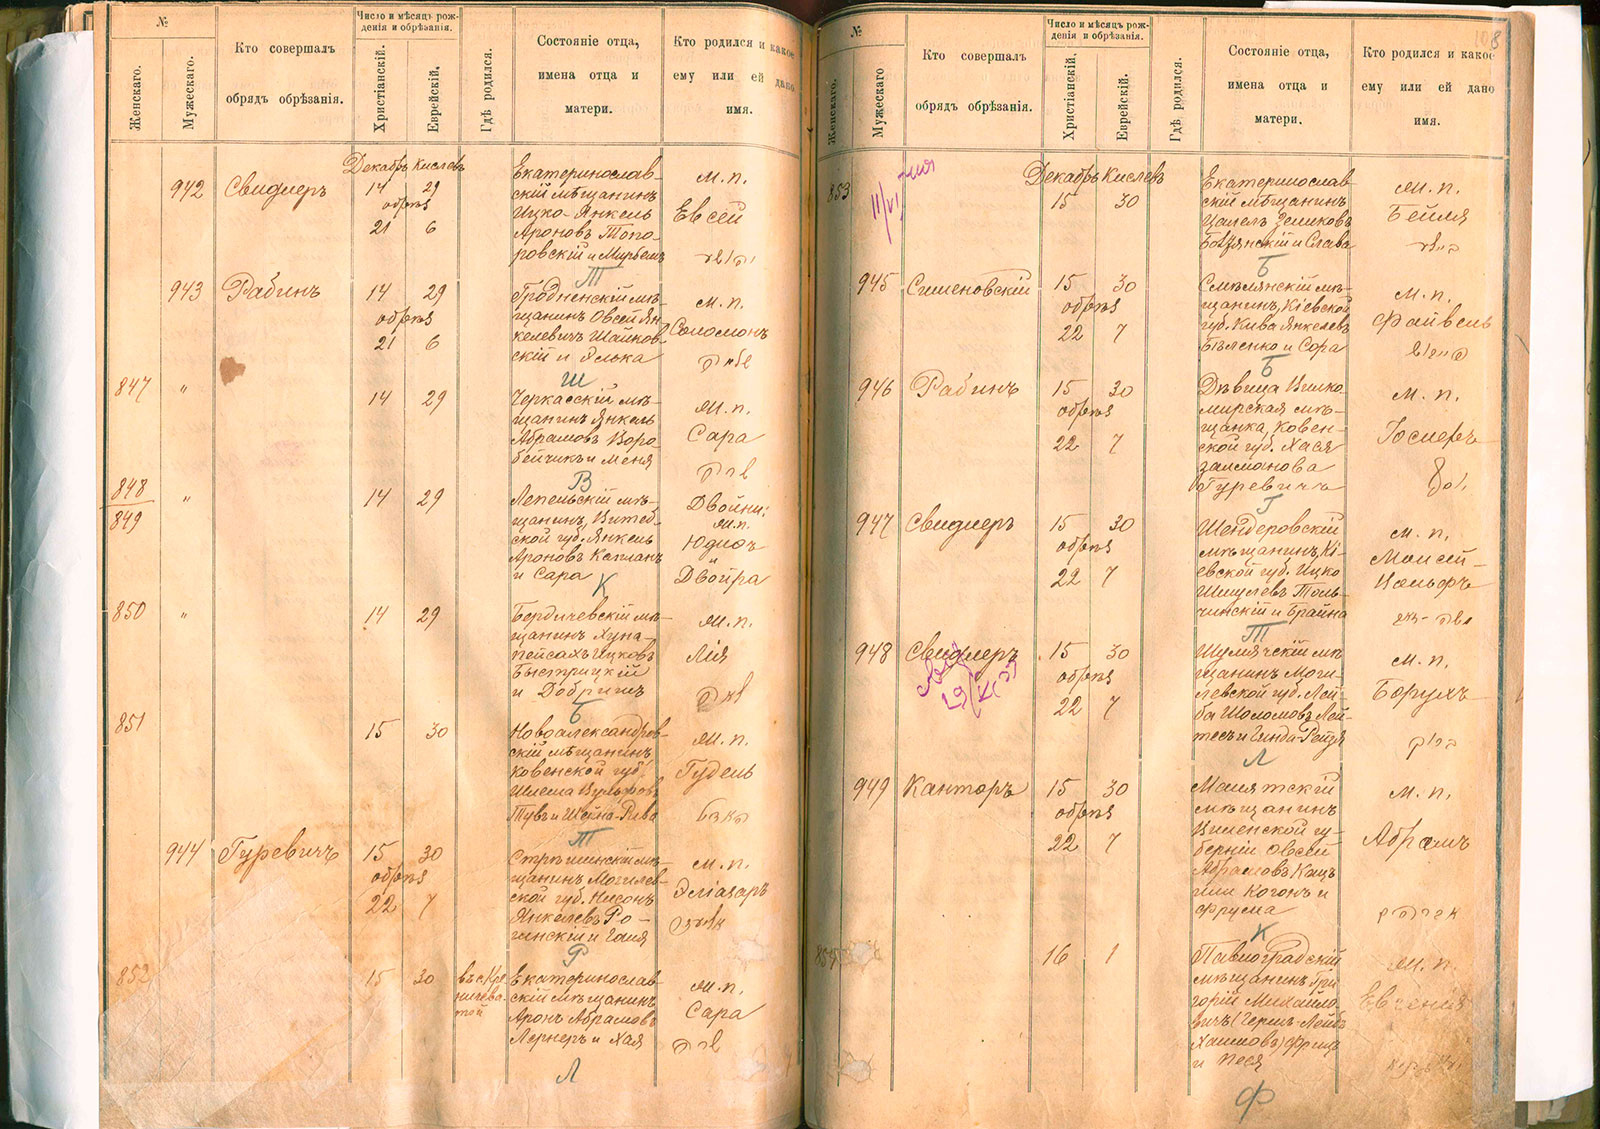 №
Женскаго.
Мужескаго.
Кто совершалъ
обрядъ обрѣзанія.
Число и мѣсяцъ рож-
денія и обрѣзанія.
Христіанскій.
Еврейскій.
Гдѣ родился.
Состояніе отца,
имена отца и
матери.
Кто родился и какое
ему или ей дано
имя.
Декабрь Кислевъ
942 Свидлеръ
14 29
обрѣз
21 6
Екатеринослав-
скій мѣщанинъ
Ицко-Янкель
Ароновъ Топо-
ровскій и Мирьемъ
м.п.
Евсей
Т
943 Рабинъ
14 29
обрѣз
21 6
Гродненскій мѣ-
щанинъ Овсей Ян-
келевичъ Шайков-
скій и Элька
м.п.
Соломонъ
Ш
847 "
14 29
Черкасскій мѣ-
щанинъ Янкель
Абрамовъ Воро-
бейчикъ и Меня
м.п.
Сара
В
848
849
"
14 29
Лепельскій мѣ-
щанинъ, Витеб-
ской губ. Янкель
Ароновъ Капланъ
и Сара
Двойни:
м.п.
Юдиѳь
и
Двойра
К
850 "
14 29
Бердичевскій мѣ-
щанинъ Хуна-
Пейсахъ Ицковъ
Быстрицкій
и Добришъ
м.п.
Лія
Б
851
15 30
Новоалександров-
скій мѣщанинъ,
Ковенской губ.
Шлема Вульфовъ
Тувъ и Шейна-Рива
м.п.
Гудель
Т
944 Гуревичъ
15 30
обрѣз
22 7
Стрѣшинскій мѣ-
щанинъ Могилев-
ской губ. Нисонъ
Янкелевъ Ро-
гинскій и Галя
м.п.
Эліазаръ
Р
852
15 30
въ с. Кри-
ничева-
той
Екатеринослав-
скій мѣщанинъ
Аронъ Абрамовъ
Лернеръ и Хая
м.п.
Сара
Л
108
№
Женскаго.
Мужескаго
Кто совершалъ
обрядъ обрѣзанія.
Число и мѣсяцъ рож-
денія и обрѣзанія.
Христіанскій.
Еврейскій.
Гдѣ родился.
Состояніе отца,
имена отца и
матери.
Кто родился и какое
ему или ей дано
имя.
853
11/VI
Декабрь Кислевъ
15 30
Екатеринослав
скій мѣщанинъ
м.п.
Бейля
Б
945 Сименовскій
15 30
обрѣз
22 7
Смѣлянскій мѣ-
щанинъ, Кіевской
губ. Кива Янкелевъ
Бѣленко и Сора
м.п.
Файвель
Б
946 Рабинъ
15 30
обрѣз
22 7
Дѣвица Вилко-
мирская мѣ-
щанка, Ковен-
ской губ. Хася
Залманова
Гуревичъ
м.п.
Іосиферъ
Г
947 Свидлеръ
15 30
обрѣз
22 7
Шендеровскій
мѣщанинъ, Кі-
евской губ. Ицко
Шмулевъ Толь-
чинскій и Брайна
м.п.
Моисей-
Вольфъ
Т
948 Свидлеръ
15 30
обрѣз
22 7
Шумячскій мѣ-
щанинъ Моги-
левской губ. Лей-
ба Шоломовъ Лей-
тесъ и Гинда-Рейзя
м.п.
Борухъ
Л
949 Канторъ
15 30
обрѣз
22 7
Малятскій
мѣщанинъ
Виленской гу-
берніи Овсей
Абрамовъ Кацъ
или Когонъ и
Фрума
м.п.
Абрамъ
К
854
16 1
Павлоградскій
мѣщанинъ Гри-
горій Михайло-
вичъ (Герш-Лейбъ
Хаимовъ) Фришъ
и Песя
м.п.
Евгенія
Ф